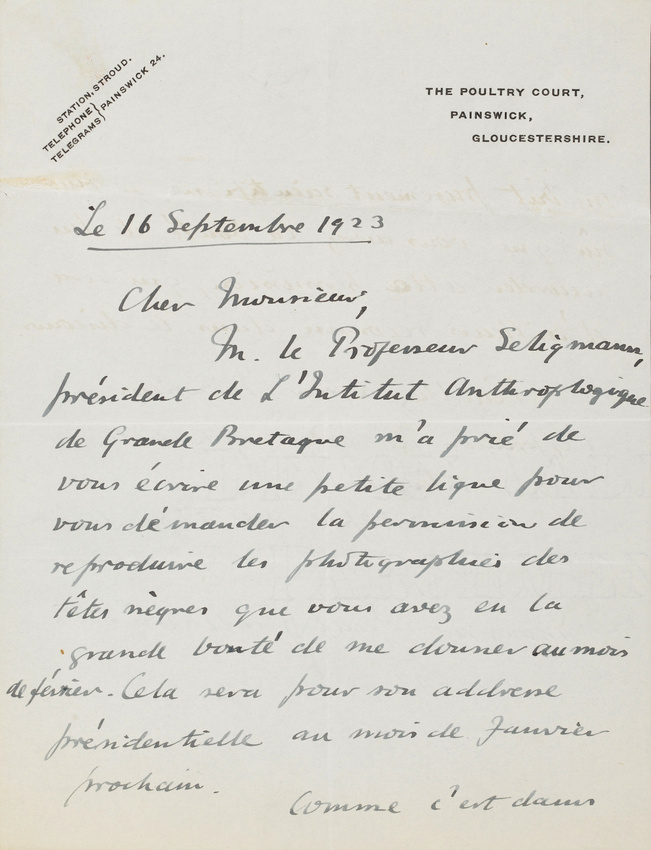 STATION, STROUD.
TELEPHONE } PAINSWICK 24.
TELEGRAMS
THE POULTRY COURT,
PAINSWICK,
GLOUCESTERSHIRE.
Le 16 Septembre 1923
Cher Monsieur,
M. le Professeur Seligmann,
président de L'Intitut Anthroplogique
de Grande Bretagne m'a prié de
vous écrire une petite ligne pour
vous démander la permission de
reproduire les photographies des
têtes nègres que vous avez eu la
grande bonté de me donner au mois
de février. Cela sera pour son addresse
présidentielle au mois de Janvier
prochain.
Comme c'est dans